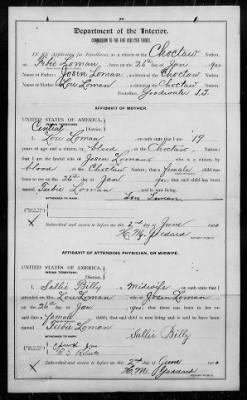 Department of the Interior,
COMMISSION TO THE FIVE CIVILIZED TRIBES.
IN RE Application for Enrollment, as a citizen of the Choctaw Nation,
of Tibie Loman, born on the 26th day of Jan, 190
Name of Father: Josen Loman a citizen of the Choctaw Nation.
Name of Mother: Lou Loman a citizen of the Choctaw Nation.
Postoffice, Goodwater I.T.
AFFIDAVIT OF MOTHER.
UNITED STATES OF AMERICA,
INDIAN TERRITORY,
Central District.
I, Lou Loman, on oath state that I am 19
years of age and a citizen, by blood, of the Choctaw Nation;
that I am the lawful wife of Josen Loman, who is a citizen, by
blood of the Choctaw Nation; that a female child was
born to me on the 26th day of Jan; that said child has been
named Tibie Loman, and is now living.
Lou Loman
Subscribed and sworn to before me this 2nd day of June
AFFIDAVIT OF ATTENDING PHYSICIAN, OR MIDWIFE.
UNITED STATES OF AMERICA,
INDIAN TERRITORY,
District.
I, Sallie Billy, a Midwife, on oath state that I
attended on Lou Loman, wife of Josen Loman
on the 26 day of Jan; that there was born to her on said
date a female child; that said child is now living and is said to have been
named Tibie Loman
Sallie Billy
Subscribed and sworn to before me this 2nd day of June